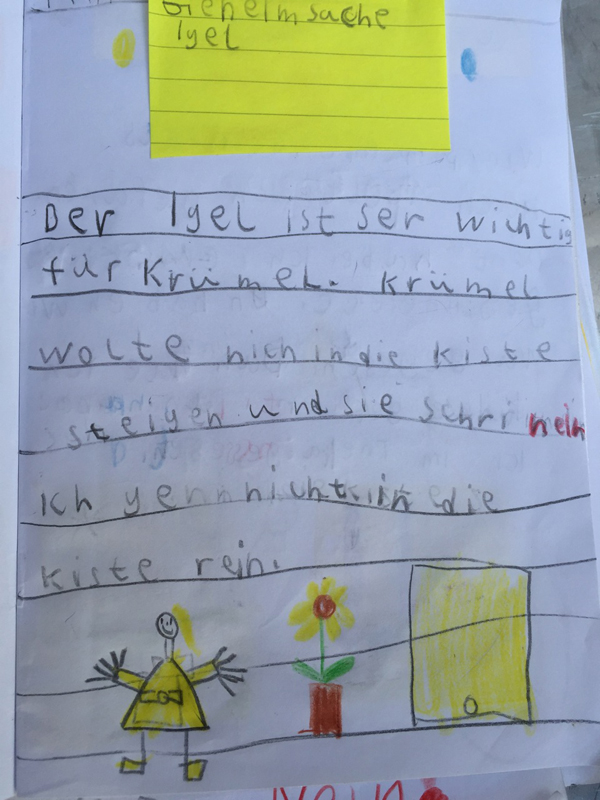 Giehelmsache
Igel
Der Igel ist ser wichtig
für Krümel. Krümel
wolte nich in die kiste
steigen und sie schri nein
Ich nicht in die
kiste rein.